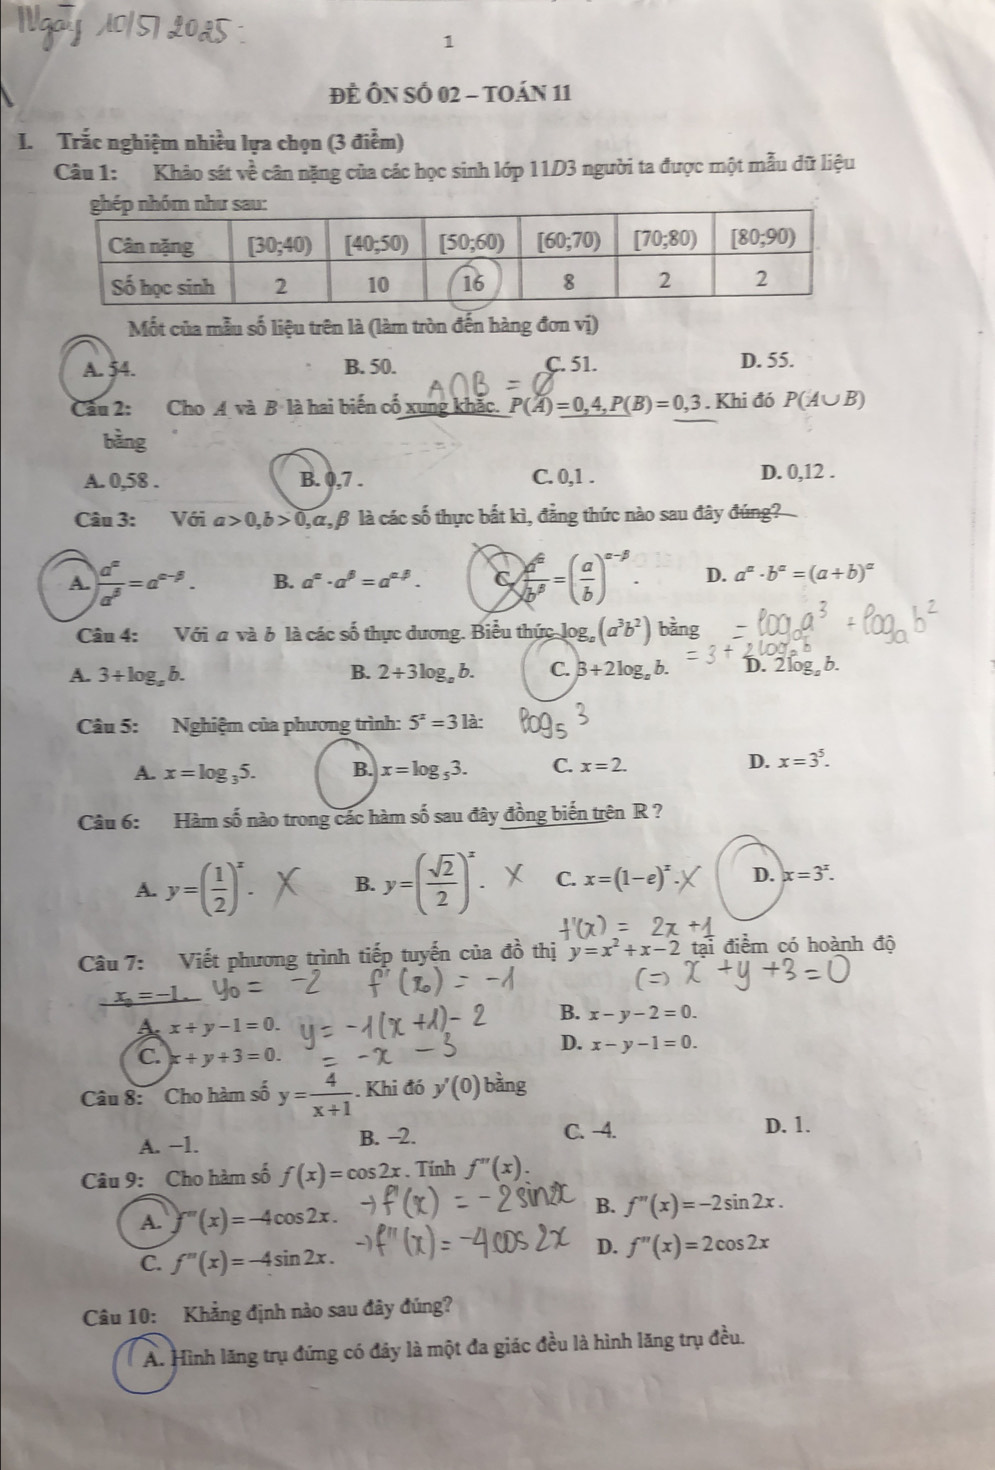 Ngày 10/5/2025:
1
ĐỀ ÔN SỐ 02 – TOÁN 11
I. Trắc nghiệm nhiều lựa chọn (3 điểm)
Câu 1: Khảo sát về cân nặng của các học sinh lớp 11D3 người ta được một mẫu dữ liệu
ghép nhóm như sau:
Cân nặng [30;40) [40;50) [50;60) [60;70) [70;80) [80;90)
Số học sinh 2 10 16 8 2 2
Mốt của mẫu số liệu trên là (làm tròn đến hàng đơn vị)
A. 54. B. 50. C. 51. D. 55.
A∩B = ∅
Câu 2: Cho A và B là hai biến cố xung khắc. P(A)=0,4, P(B)=0,3. Khi đó P(A∪B)
bằng
A. 0,58 . B. 0,7 . C. 0,1 . D. 0,12 .
Câu 3: Với a>0,b>0,α,β là các số thực bất kì, đẳng thức nào sau đây đúng?
A. a^α/a^β = a^(α-β) . B. a^α·a^β = a^(α·β) . C. a^α/b^β = (a/b)^(α-β) . D. a^α·b^α = (a+b)^α
Câu 4: Với a và b là các số thực dương. Biểu thức log_a(a³b²) bằng = log_a a³ + log_a b²
= 3 + 2log_a b
A. 3+log_a b. B. 2+3log_a b. C. 3+2log_a b. D. 2log_a b.
Câu 5: Nghiệm của phương trình: 5^x = 3 là: log₅3
A. x = log₃5. B. x = log₅3. C. x = 2. D. x = 3⁵.
Câu 6: Hàm số nào trong các hàm số sau đây đồng biến trên R ?
A. y=(1/2)^x. X B. y=(√2/2)^x. X C. x=(1-e)^x. X D. x=3^x.
f'(x) = 2x+1
Câu 7: Viết phương trình tiếp tuyến của đồ thị y=x²+x-2 tại điểm có hoành độ
x₀=-1. y₀ = -2 f'(x₀) = -1 (=) x+y+3=0
A. x+y-1=0. y= -1(x+1)-2 B. x-y-2=0.
C. x+y+3=0. = -x -3 D. x-y-1=0.
Câu 8: Cho hàm số y=4/(x+1). Khi đó y'(0) bằng
A. -1. B. -2. C. -4. D. 1.
Câu 9: Cho hàm số f(x)=cos2x. Tính f''(x).
A. f''(x)=-4cos2x. →f'(x) = -2sin2x B. f''(x)=-2sin2x.
C. f''(x)=-4sin2x. →f''(x)=-4cos2x D. f''(x)=2cos2x
Câu 10: Khẳng định nào sau đây đúng?
A. Hình lăng trụ đứng có đáy là một đa giác đều là hình lăng trụ đều.